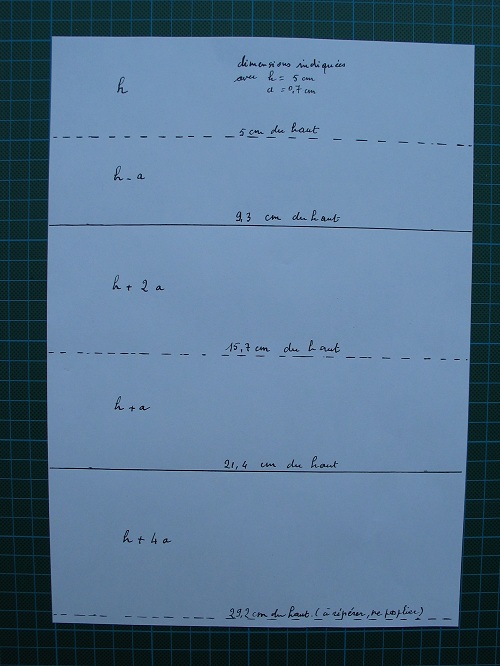 dimensions indiquées
avec h = 5 cm
a = 0,7 cm
h
5 cm du haut
h - a
9,3 cm du haut
h + 2 a
15,7 cm du haut
h + a
21,4 cm du haut
h + 4 a
29,2 cm du haut (à repérer, ne pas plier)